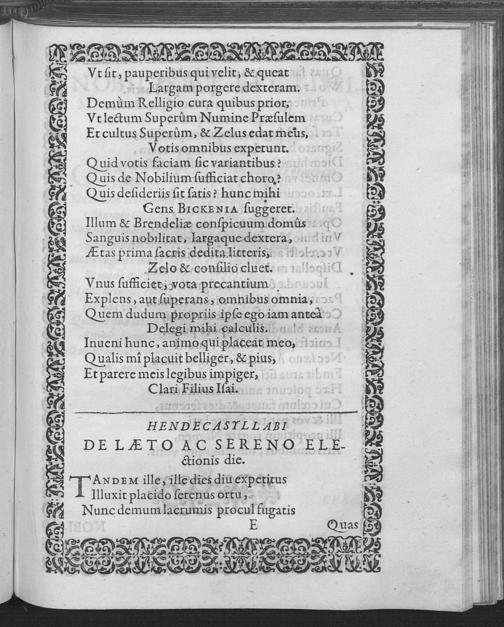 Vt sit, pauperibus qui velit, & queat
Largam porgere dexteram.
Demùm Relligio cura quibus prior,
Vt lectum Superûm Numine Præsulem
Et cultus Superûm, & Zelus edat meus,
Votis omnibus expetunt.
Quid votis faciam sic variantibus?
Quis de Nobilium sufficiat choro?
Quis desideriis sit satis? hunc mihi
Gens BICKENIA suggeret.
Illum & Brendeliæ conspicuum domûs
Sanguis nobilitat, largaque dextera,
Ætas prima sacris dedita litteris,
Zelo & consilio cluet.
Vnus sufficiet, vota precantium
Explens, aut superans, omnibus omnia,
Quem dudum propriis ipse ego iam anteà
Delegi mihi calculis.
Inueni hunc, animo qui placeat meo,
Qualis mî placuit belliger, & pius,
Et parere meis legibus impiger,
Clari Filius Isai.
HENDECASYLLABI
DE LÆTO AC SERENO ELE-
ctionis die.
TANDEM ille, ille dies diu expetitus
Illuxit placido serenus ortu,
Nunc demum lacrumis procul fugatis
E Quas